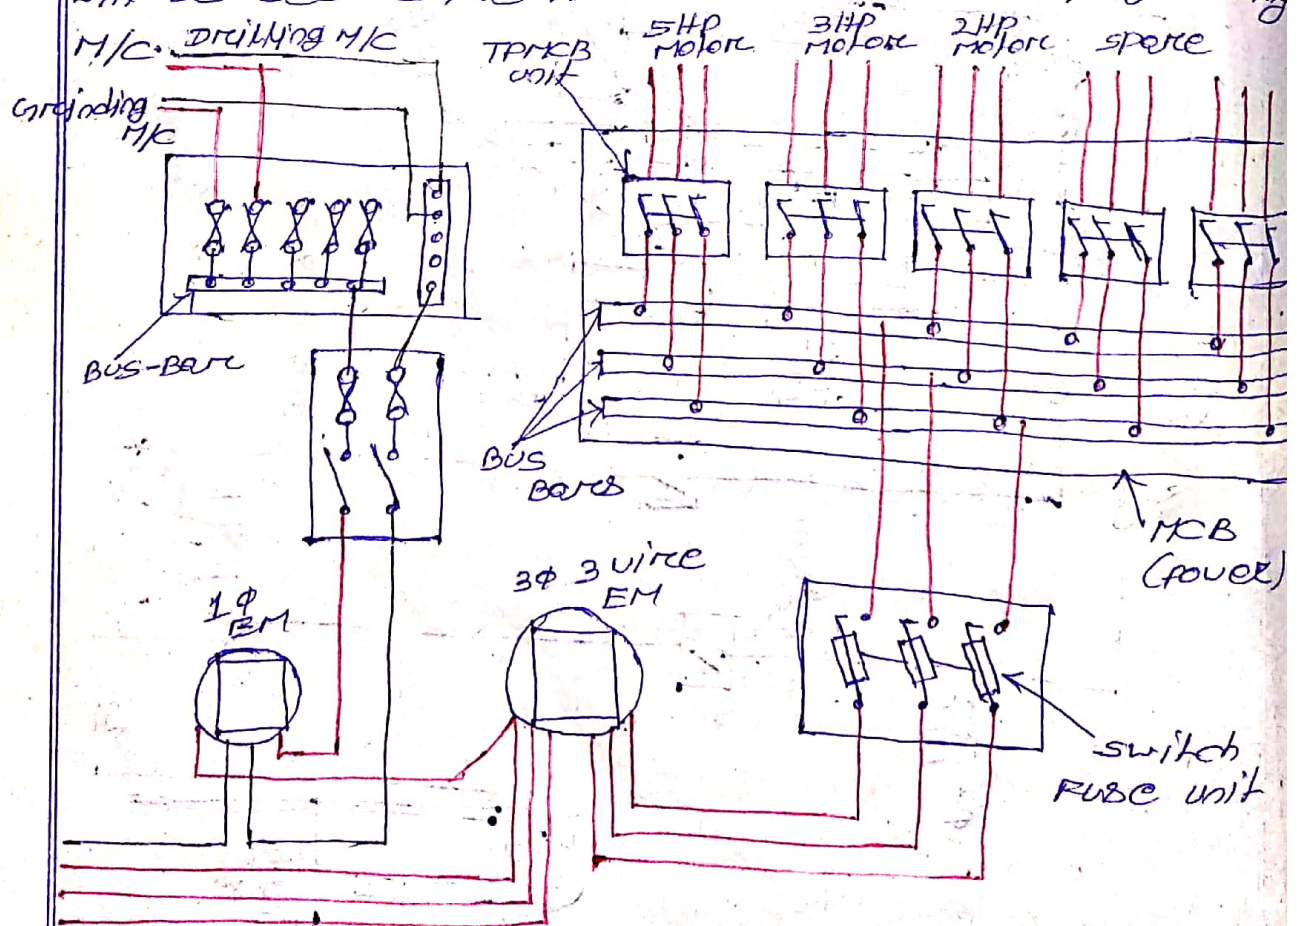 M/C. Drilling M/C
Grinding
M/C
TPMCB
unit
5HP
Motor
3HP
Motor
2HP
Motor
spare
BUS-Bar
BUS
Bars
MCB
(power)
1φ
EM
3φ 3 wire
EM
switch
Fuse unit